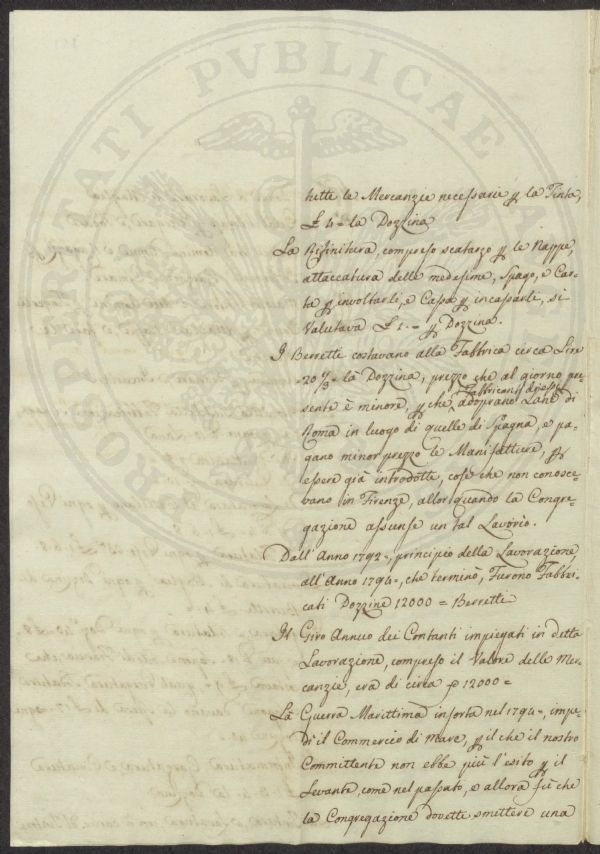 tutte le Mercanzie necessarie p la Tinta,
£ 4 = la Dozzina
La Rifinitura, compreso scatarzo p le Nappe,
attaccatura delle medesime, Spago, e Car=
ta p involtarli, e Cassa p incassarli, si
Valutava £ 1. = p Dozzina.
I Berretti costavano alla Fabbrica circa Lire
20 1/3 = la Dozzina, prezzo che al giorno pre=
sente è minore, p che i Fabbricanti di essi adoprano Lane di
Roma in luogo di quelle di Spagna, e pa=
gano minor prezzo le Manifatture, p
essere già introdotte, cose che non conosce=
vano in Firenze, allor quando la Congre=
gazione assunse un tal Lavorio.
Dall' Anno 1792 =, principio della Lavorazione,
all' Anno 1794 =, che terminò, Furono Fabbri=
cati Dozzine 12000 = Berretti
Il Giro Annuo dei Contanti impiegati in detta
Lavorazione, compreso il Valore delle Mer=
canzie, era di circa 12000 =
La Guerra Marittima insorta nel 1794 =, impe=
dì il Commercio di Mare, p il che il nostro
Committente non ebbe più l'esito p il
Levante, come nel passato, e allora fù che
la Congregazione dovette smettere una
OSPITATI PVBLICAE